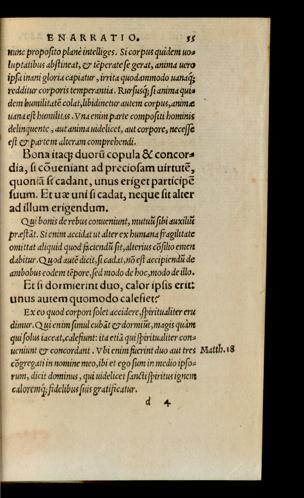 ENARRATIO. 55
nunc proposito planè intelliges. Si corpus quidem uo-
luptatibus abstineat, & tēperate se gerat, anima uero
ipsa inani gloria capiatur, irrita quodammodo uanaq́;
redditur corporis temperantia. Rursusq́; si anima qui-
dem humilitatē colat, libidinetur autem corpus, animæ
uana est humilitas. Vna enim parte compositi hominis
delinquente, aut anima uidelicet, aut corpore, necesse
est & partem alteram comprehendi.
Bona itaq; duorū copula & concor-
dia, si cōueniant ad preciosam uirtutē,
quoniā si cadant, unus eriget participē
suum. Et uæ uni si cadat, neque sit alter
ad illum erigendum.
Qui bonis de rebus conueniunt, mutuū sibi auxiliū
præstāt. Si enim accidat ut alter ex humana fragilitate
omittat aliquid quod faciendū sit, alterius cōsilio emen
dabitur. Quod autē dicit, si cadat, nō est accipiendū de
ambobus eodem tēpore, sed modo de hoc, modo de illo.
Et si dormierint duo, calor ipsis erit:
unus autem quomodo calefiet?
Ex eo quod corpori solet accidere, spiritualiter eru
dimur. Qui enim simul cubāt & dormiūt, magis quàm
qui solus iaceat, calefiunt: ita etiā qui spiritualiter con-
ueniunt & concordant. Vbi enim fuerint duo aut tres Matth. 18
cōgregati in nomine meo, ibi et ego sum in medio ipso-
rum, dicit dominus, qui uidelicet sancti spiritus ignem
caloremq́; fidelibus suis gratificatur.
d 4